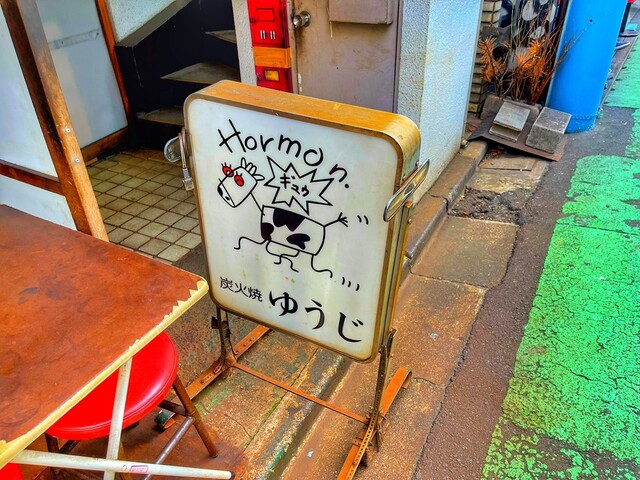 Hormon.
ギュウ
炭火焼
ゆうじ